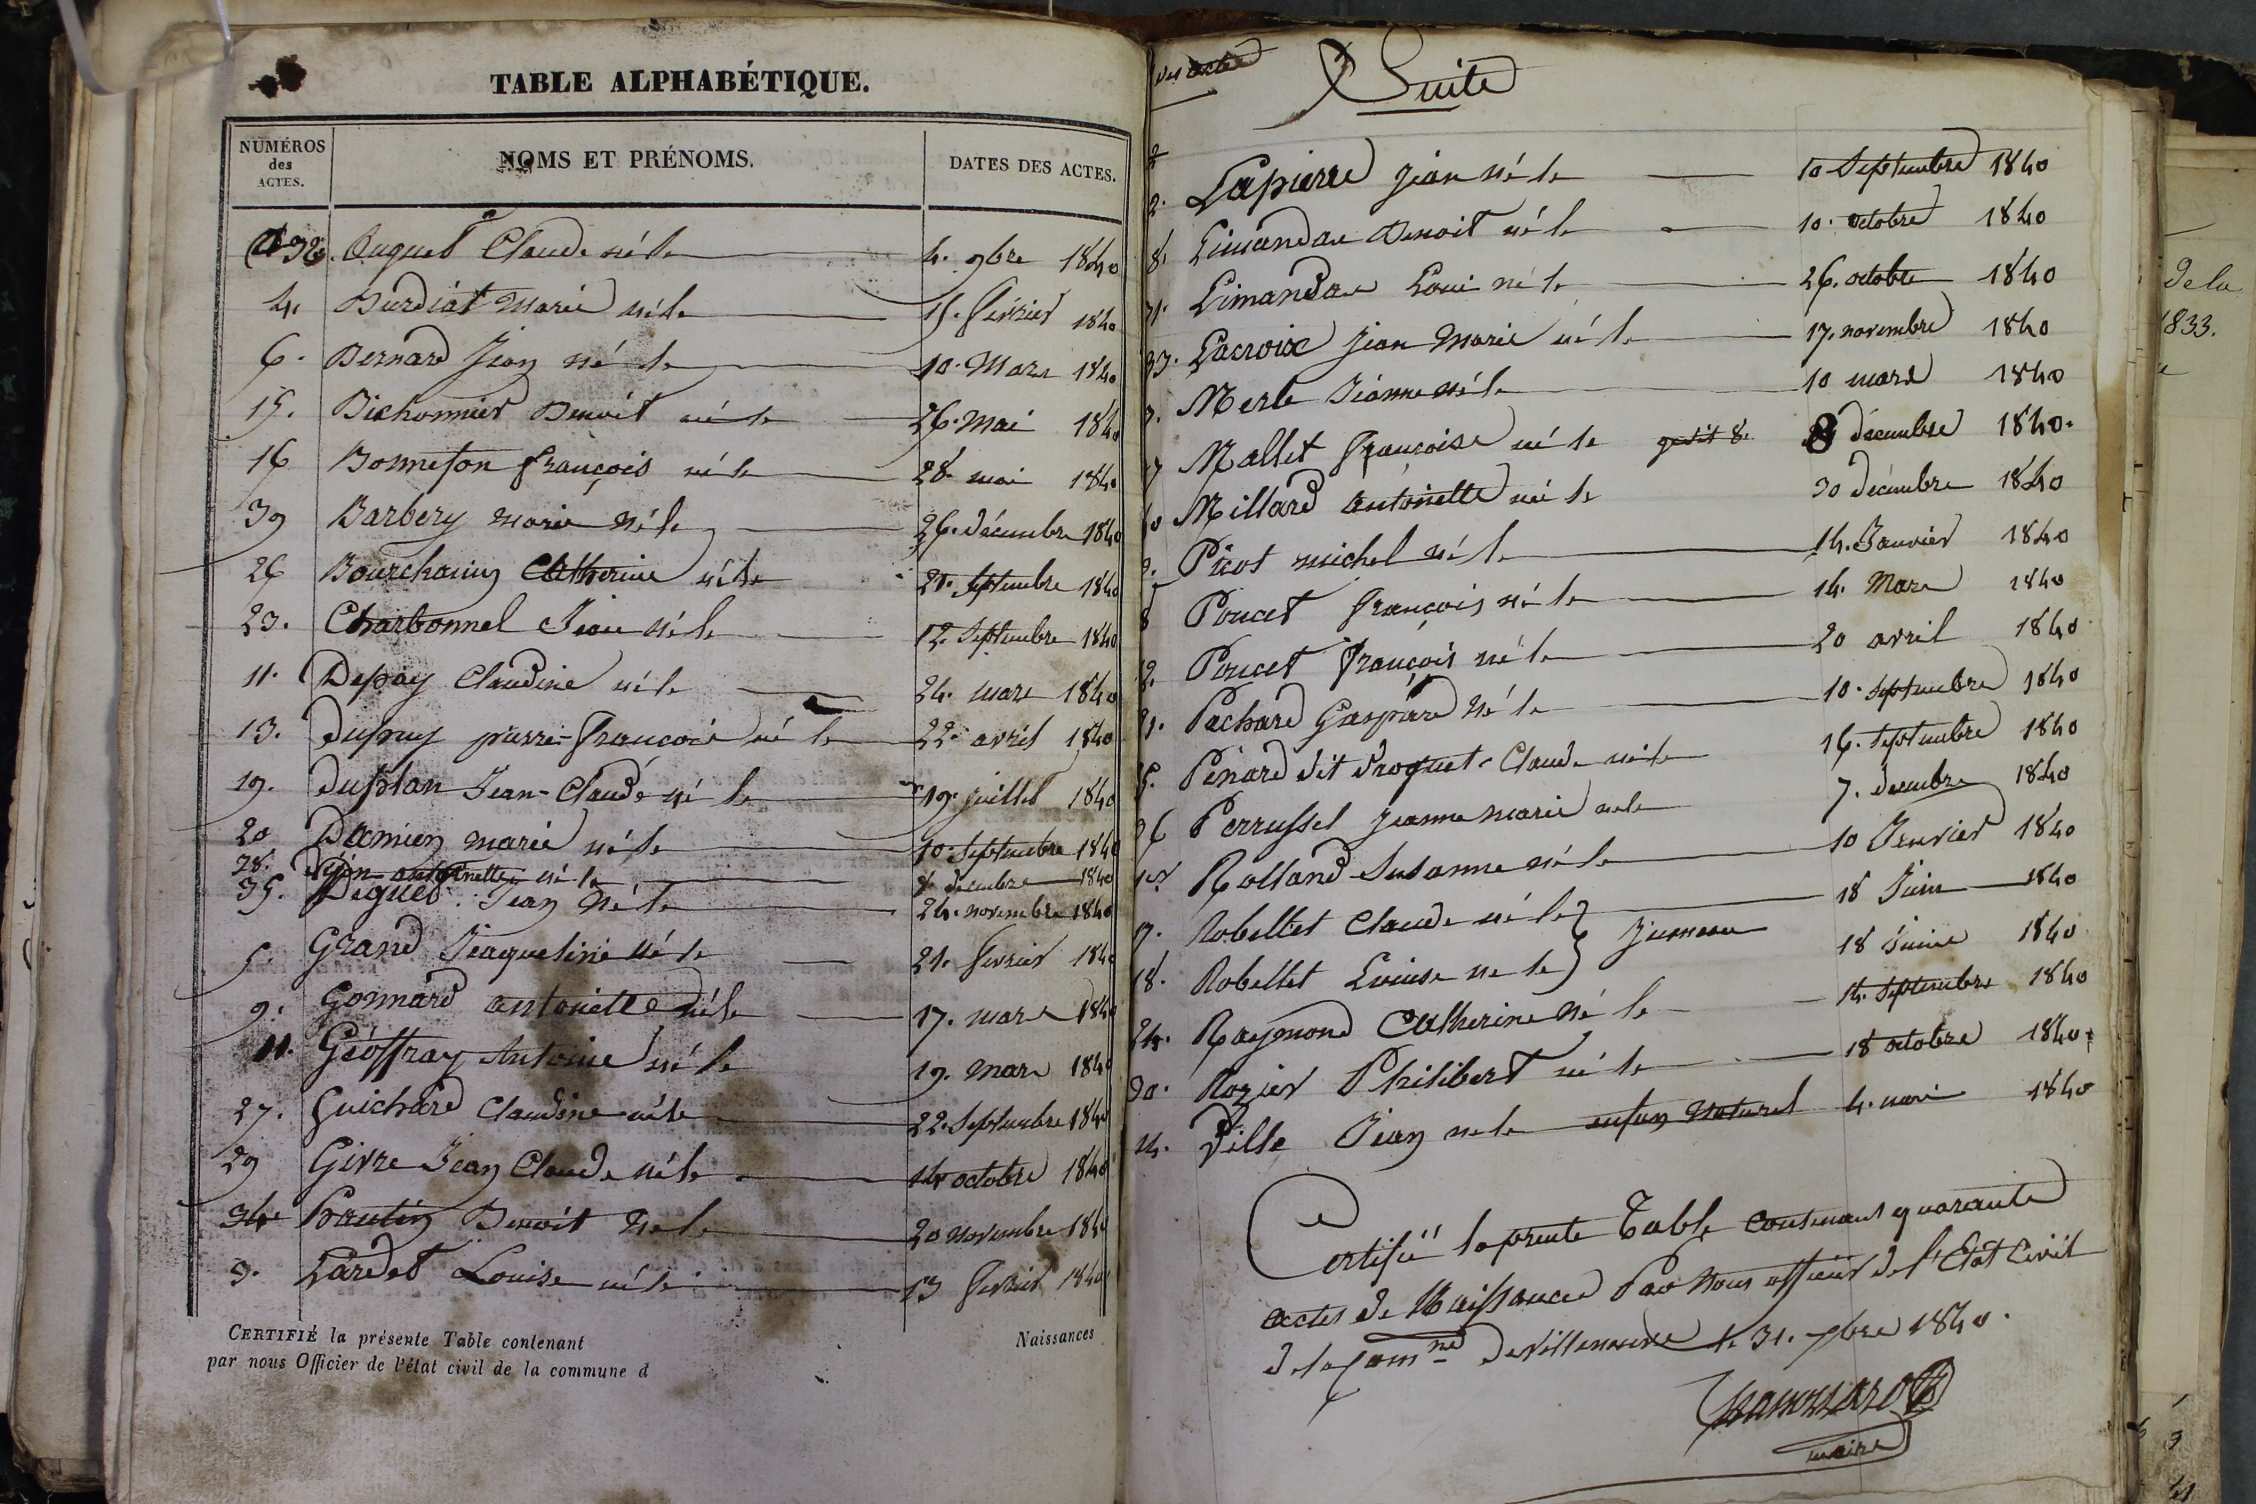 TABLE ALPHABÉTIQUE.
NUMÉROS des ACTES.
NOMS ET PRÉNOMS.
DATES DES ACTES.
32. Claude né le 4. 9bre 1840
4. Burdiat Marie né le 15. fevrier 1840
6. Bernard Jean né le 10. Mars 1840
15. Bichonnier Benoit né le 26. Mai 1840
16 Bonneton françois né le 28. mai 1840
39 Barbery marie né le 26. décembre 1840
26 Catherine né le 21. Septembre 1840
23. Charbonnel Jean né le 12. Septembre 1840
11. Claudine né le 24. mars 1840
13. Dupuy pierre-françois né le 22. avril 1840
19. Duplan Jean-Claude né le 19. juillet 1840
20 Damien marie né le 10. Septembre 1840
38. antoinette né le decembre 1840
35. Jean né le 24. novembre 1840
5. Grand Jeaqueline né le 21. fevrier 1840
9. Gonnard antoinette né le 17. mars 1840
11. Géoffray Antoine né le 19. Mars 1840
27. Guichard Claudine né le 22. Septembre 1840
29 Givre Jean Claude né le 14 octobre 1840
34 Benoit né le 20 novembre 1840
3. Lardet Louise né le 13 fevrier 1840
CERTIFIÉ la présente Table contenant
Naissances
par nous Officier de l'état civil de la commune d
des actes
Suite
2. Lapierre jean né le 10 Septembre 1840
8. Limandas Benoit né le 10. octobre 1840
Limandas Loui né le 26. octobre 1840
33. Lacroix jean Marie né le 17. novembre 1840
7. Merle Jeanne né le 10 mars 1840
7 Mallet françoise né le 8 décembre 1840.
40 Millard antoinette né le 30 décembre 1840
2. Picot michel né le 14. Janvier 1840
8 Poncet françois né le 14. Mars 1840
12. Poncet françois né le 20 avril 1840
21. Pechard Gaspard né le 10. septembre 1840
25. Penard dit Claude né le 16. septembre 1840
36 Perrussel jeanne marie né le 7. decembre 1840
1er Rolland Susanne né le 10 Jenvier 1840
17. Robellet Claude né le 18 Juin 1840
Jumeau
18. Robellet Louise né le 18 Juin 1840
24. Raymond Catherine né le 14. septembre 1840
30. Rozier Philibert né le 18 octobre 1840.
14. Ville Jean né le enfan naturel 4. mai 1840
Certifié la prente Table contenant quarante
actes de Naissance Par nous officier de l'Etat Civil
de la Comne de Villeneuve le 31. 1840.
maire
de la
1833.